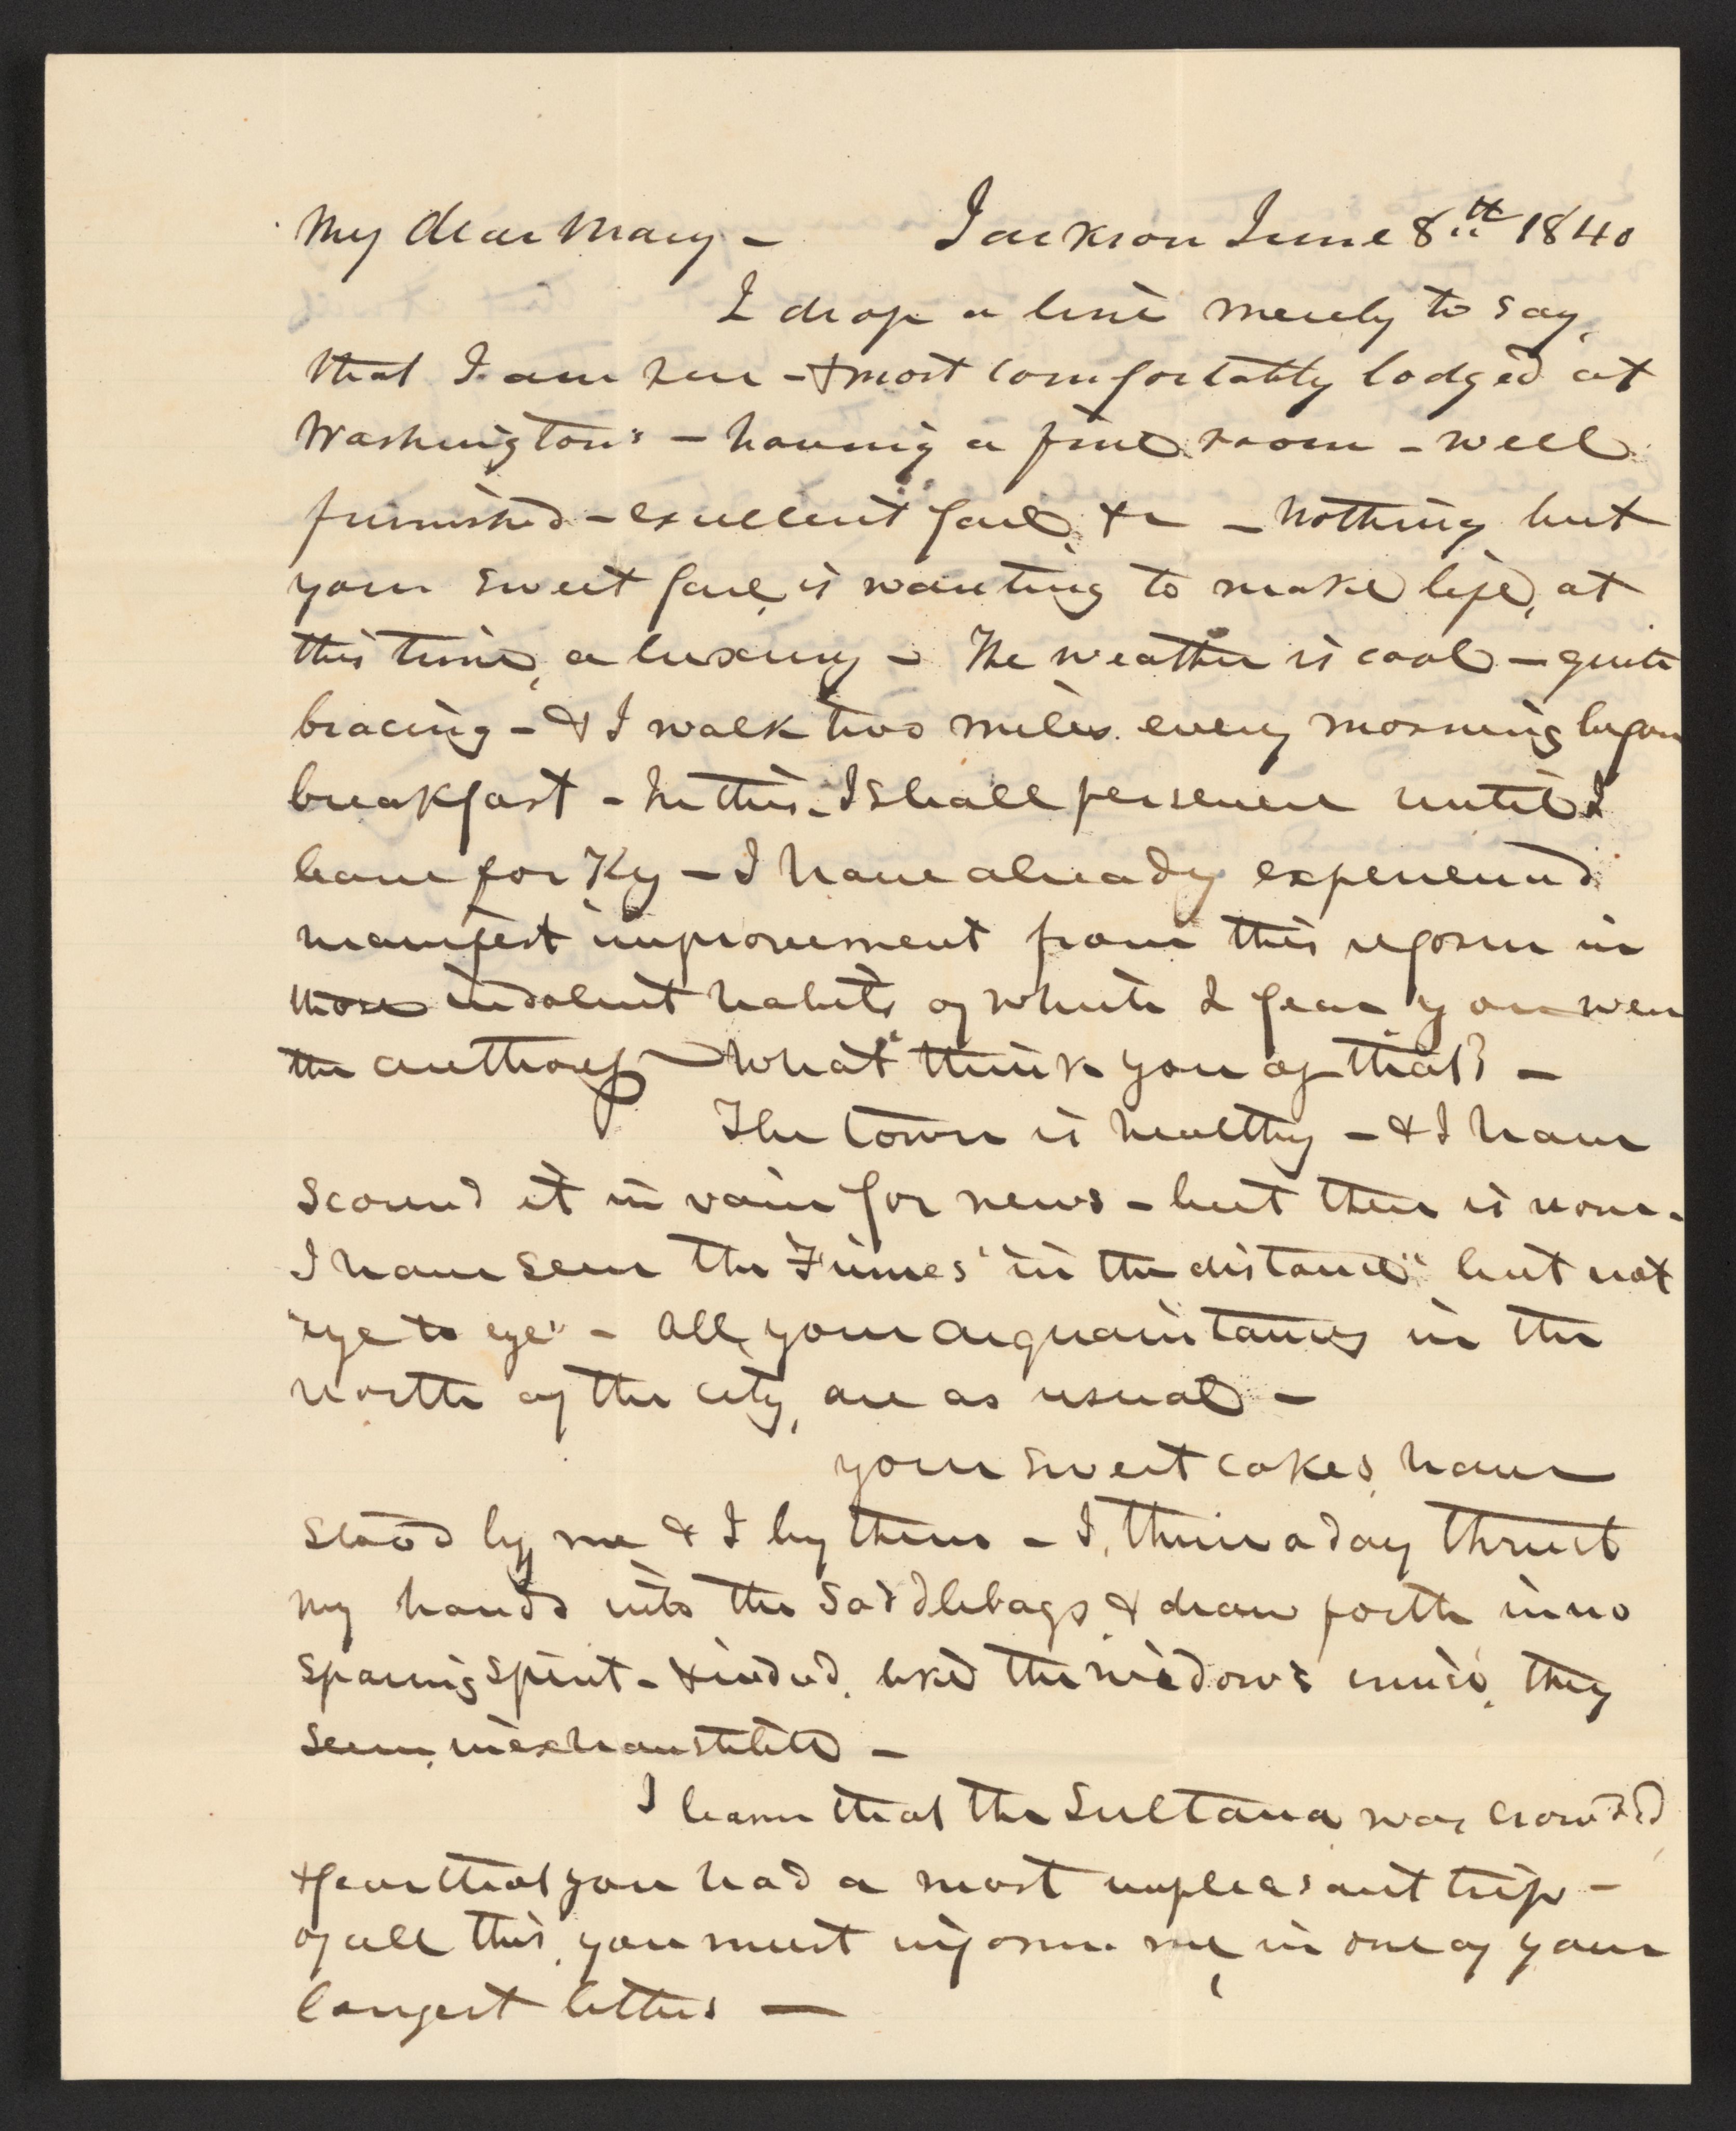 My dear Mary - Jackson June 8th 1840
I drop a line merely to say,
that I am here - & most comfortably lodged at
Washington's - having a fine room - well
furnished - excellent fare, &c - Nothing but
your sweet face, is wanting to make life, at
this time, a luxury - The weather is cool - quite
bracing - & I walk two miles every morning before
breakfast - In this - I shall persevere until I
leave for Ky - I have already experienced
manifest improvement from this reform in
those indolent habits of which I fear you were
the author - What think you of that? -
The town is healthy - & I have
scoured it in vain for news - but there is none -
I have seen the "in the distance" but not
"eye to eye" - All, your acquaintances in the
north of the city, are as usual -
your sweet cakes, have
stood by me & I by them - I, thrice a day thrust
my hands into the saddlebags, & draw forth in no
sparing spirit - & indeed, like the widow's cruise, they
seem, inexhaustible -
I learn that the Sultana was crowded,
& fear that you had a most unpleasant trip -
of all this, you must inform me, in one of your
longest letters -